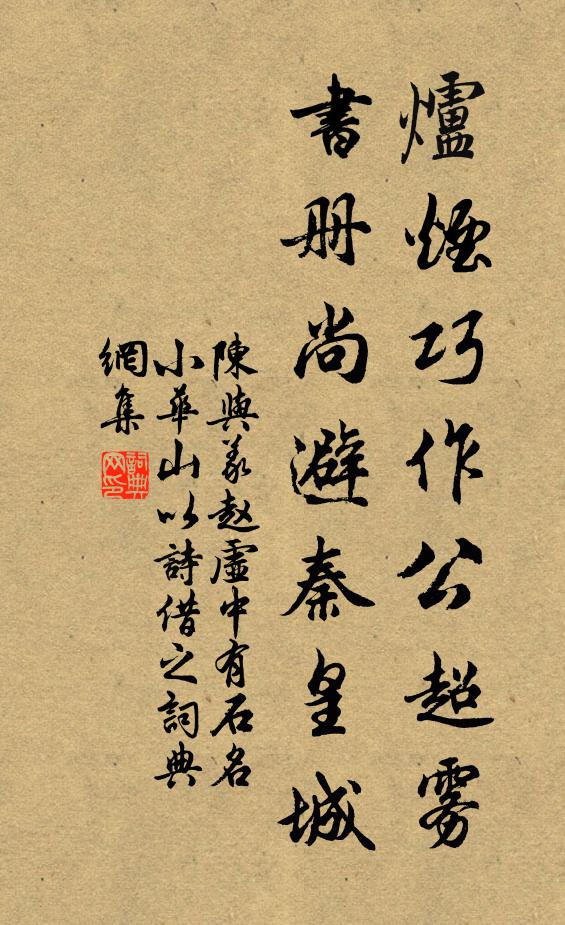 爐煙巧作公超霧
書册尚避秦皇城
陳與義趙虛中有石名
小華山以詩借之詞典
網集
詞典
网印